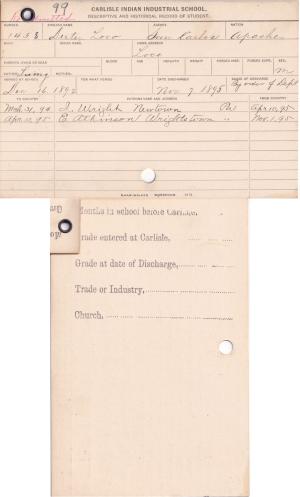 99
CARLISLE INDIAN INDUSTRIAL SCHOOL.
DESCRIPTIVE AND HISTORICAL RECORD OF STUDENT.
NUMBER ENGLISH NAME AGENCY NATION
1458 Loco San Carlos Apache
BAND INDIAN NAME HOME ADDRESS
Loco
PARENTS LIVING OR DEAD BLOOD AGE HEIGHT WEIGHT FORCED INSP. FORCED EXPR. SEX
FATHER, Living MOTHER, M
ARRIVED AT SCHOOL FOR WHAT PERIOD DATE DISCHARGED CAUSE OF DISCHARGE
Dec 16, 1892 Nov 7, 1895 Order of Dept
TO COUNTRY PATRONS NAME AND ADDRESS FROM COUNTRY
Mch. 31, 94 J. Wright Newtown Pa Apr. 10, 95
Apr. 10, 95 E. Atkinson Wrightstown " Nov. 1, 95
Months in school before Carlisle,
Grade entered at Carlisle,
Grade at date of Discharge,
Trade or Industry,
Church,